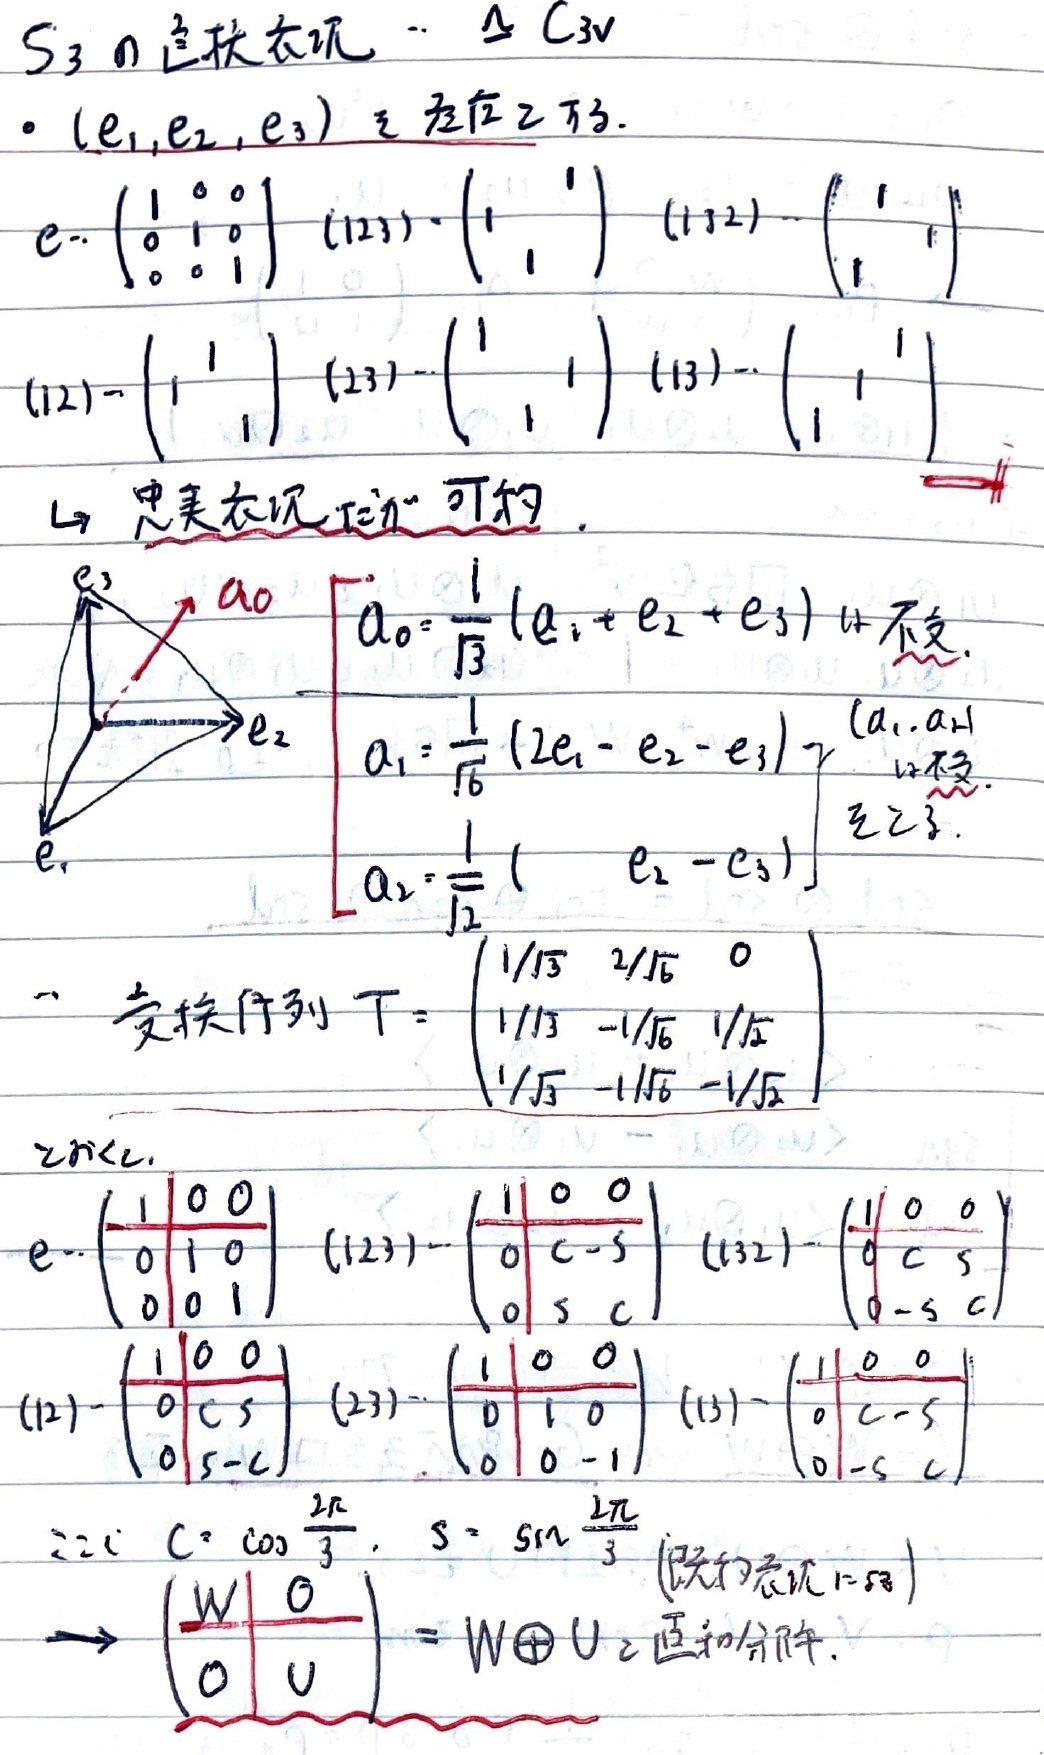 S3 の 置換表現 … ≃ C3v
・(e1, e2, e3) を 基底とする.
e… (1 0 0 / 0 1 0 / 0 0 1) (123)… ( 1 / 1 / 1 ) (132)… ( 1 / 1 / 1 )
(12)… ( 1 / 1 / 1 ) (23)… ( 1 / 1 / 1 ) (13)… ( 1 / 1 / 1 )
↳ 忠実表現だが 可約.
e3 a0 e2 e1
a0 = 1/√3 (e1 + e2 + e3) は 不変.
a1 = 1/√6 (2e1 - e2 - e3)
a2 = 1/√2 ( e2 - e3)
(a1, a2) は不変. をとる.
変換行列 T = (1/√3 2/√6 0 / 1/√3 -1/√6 1/√2 / 1/√3 -1/√6 -1/√2)
とおくと.
e… (1 0 0 / 0 1 0 / 0 0 1) (123)… (1 0 0 / 0 c -s / 0 s c) (132)… (1 0 0 / 0 c s / 0 -s c)
(12)… (1 0 0 / 0 c s / 0 s -c) (23)… (1 0 0 / 0 1 0 / 0 0 -1) (13)… (1 0 0 / 0 c -s / 0 -s c)
ここで c = cos 2π/3, s = sin 2π/3
(既約表現による)
→ (W 0 / 0 U) = W⊕U と直和分解.